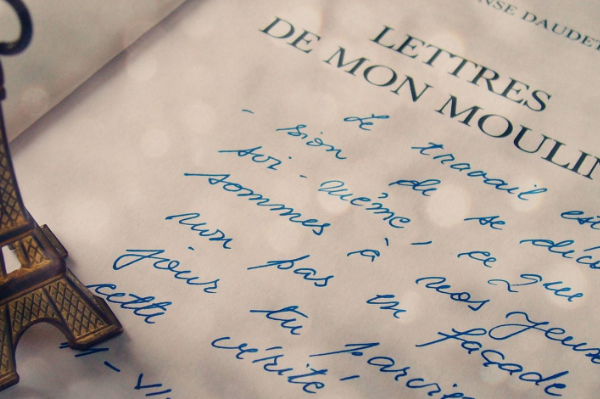 NSE DAUDET
LETTRES
DE MON MOULIN
Le travail est
- sion de se déc
soi-même, ce que
sommes à nos yeux
non pas en façade
jour tu parvie
cette vérité